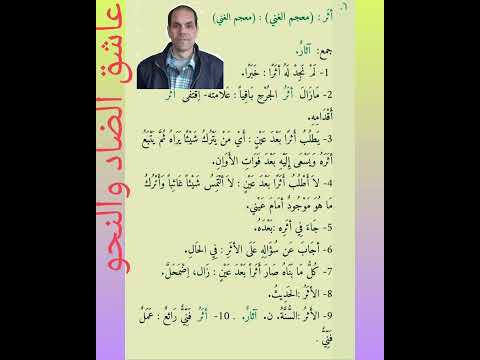 أثر : (معجم الغني) : (معجم الغني)
جمع: آثارٌ.
1- لَمْ نَجِدْ لَهُ أَثَرًا : خَبَرًا.
2- مَازَالَ أَثَرُ الجُرْحِ بَاقِياً : عَلاَمَتُه- اِقْتَفَى أَثَرَ
أَقْدَامِهِ.
3- يَطْلُبُ أَثَرًا بَعْدَ عَيْنٍ : أَيْ مَنْ يَتْرُكُ شَيْئًا يَرَاهُ ثُمَّ يَتْبَعُ
أَثَرَهُ وَيَسْعَى إِلَيْهِ بَعْدَ فَوَاتِ الأَوَانِ.
4- لاَ أَطْلُبُ أَثَرًا بَعْدَ عَيْنٍ : لاَ أَلْتَمِسُ شَيْئًا غَائِبًا وَأَتْرُكُ
مَا هُوَ مَوْجُودٌ أَمَامَ عَيْنِي.
5- جَاءَ فِي أَثَرِهِ :بَعْدَهُ.
6- أَجَابَ عَن سُؤَالِهِ عَلَى الأَثَرِ : فِي الحَالِ.
7- كُلُّ مَا بَنَاهُ صَارَ أَثَرًا بَعْدَ عَيْنٍ : زَالَ، اِضْمَحَلَّ.
8- الأَثَرُ :الحَدِيثُ.
9- الأَثَرُ :السُّنَّةُ. ن. آثَارٌ. . 10- أَثَرٌ فَنِّيٌّ رَائِعٌ : عَمَلٌ
فَنِّيٌّ .
عاشق الضاد والنحو